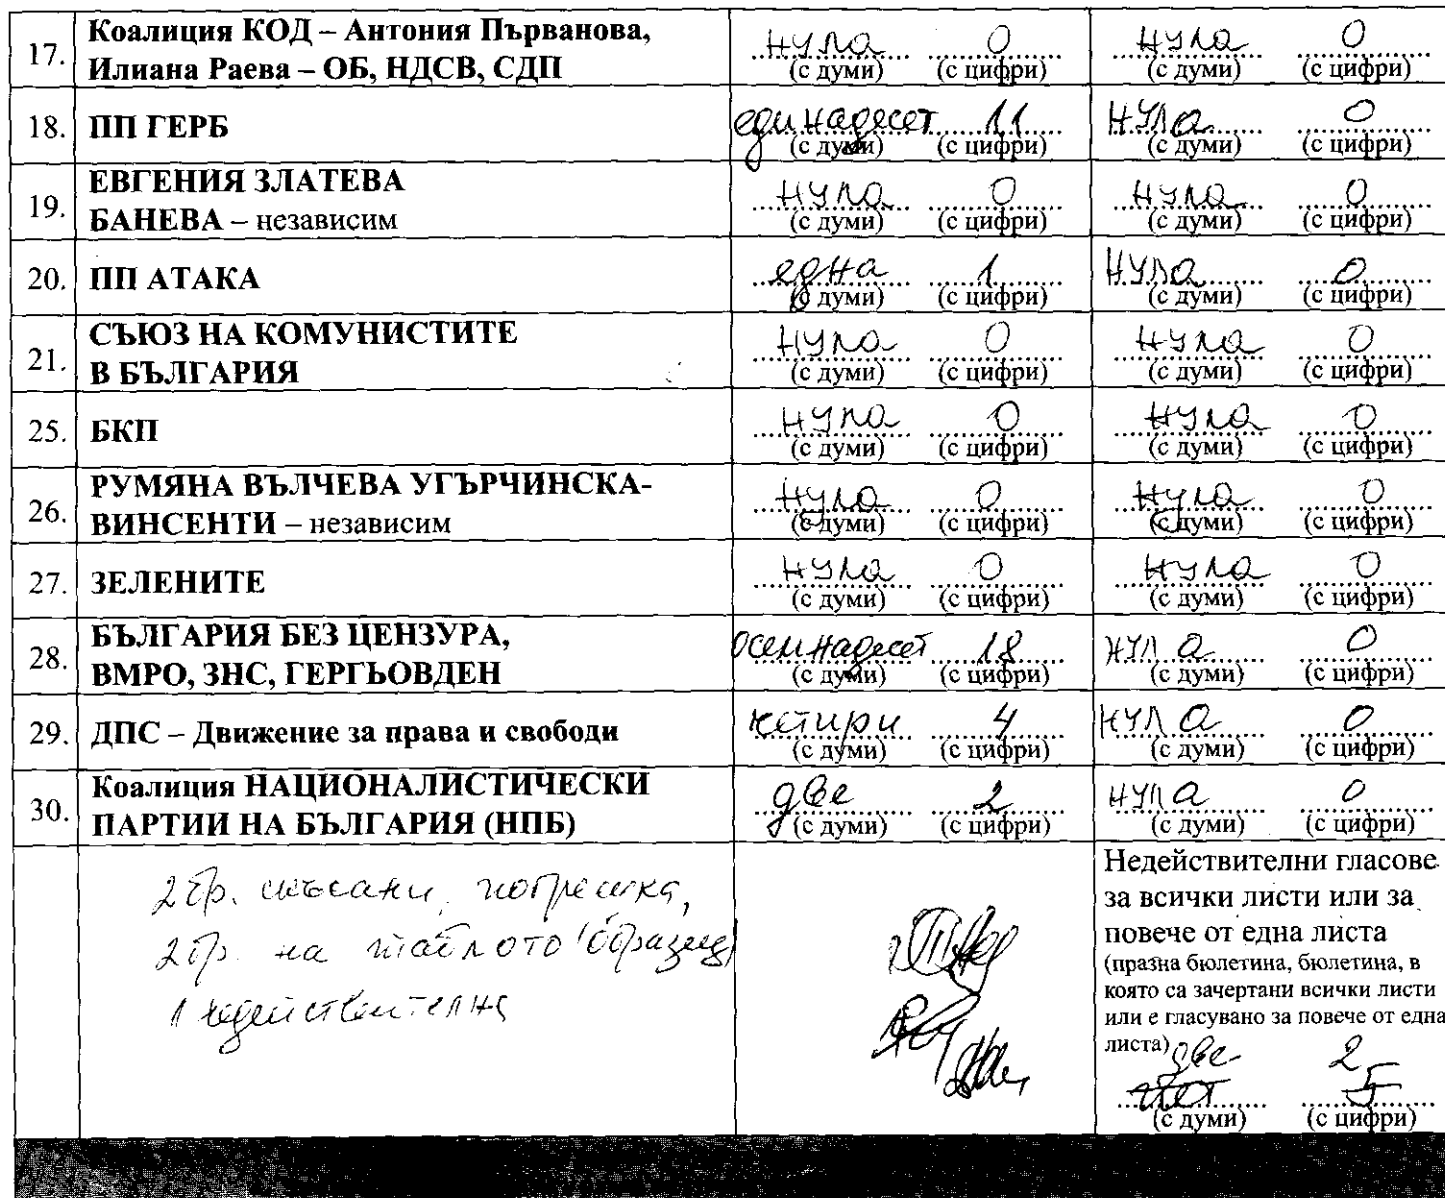 17. Коалиция КОД – Антония Първанова, Илиана Раева – ОБ, НДСВ, СДП нула 0 нула 0
(с думи) (с цифри) (с думи) (с цифри)
18. ПП ГЕРБ единадесет 11 нула 0
(с думи) (с цифри) (с думи) (с цифри)
19. ЕВГЕНИЯ ЗЛАТЕВА БАНЕВА – независим нула 0 нула 0
(с думи) (с цифри) (с думи) (с цифри)
20. ПП АТАКА една 1 нула 0
(с думи) (с цифри) (с думи) (с цифри)
21. СЪЮЗ НА КОМУНИСТИТЕ В БЪЛГАРИЯ нула 0 нула 0
(с думи) (с цифри) (с думи) (с цифри)
25. БКП нула 0 нула 0
(с думи) (с цифри) (с думи) (с цифри)
26. РУМЯНА ВЪЛЧЕВА УГЪРЧИНСКА-ВИНСЕНТИ – независим нула 0 нула 0
(с думи) (с цифри) (с думи) (с цифри)
27. ЗЕЛЕНИТЕ нула 0 нула 0
(с думи) (с цифри) (с думи) (с цифри)
28. БЪЛГАРИЯ БЕЗ ЦЕНЗУРА, ВМРО, ЗНС, ГЕРГЬОВДЕН осемнадесет 18 нула 0
(с думи) (с цифри) (с думи) (с цифри)
29. ДПС – Движение за права и свободи четири 4 нула 0
(с думи) (с цифри) (с думи) (с цифри)
30. Коалиция НАЦИОНАЛИСТИЧЕСКИ ПАРТИИ НА БЪЛГАРИЯ (НПБ) две 2 нула 0
(с думи) (с цифри) (с думи) (с цифри)
2 бр. скъсани, погрешка,
2 бр. на таблото (образец)
1 недействителна
Недействителни гласове
за всички листи или за
повече от една листа
(празна бюлетина, бюлетина, в
която са зачертани всички листи
или е гласувано за повече от една
листа) две 2
пет 5
(с думи) (с цифри)